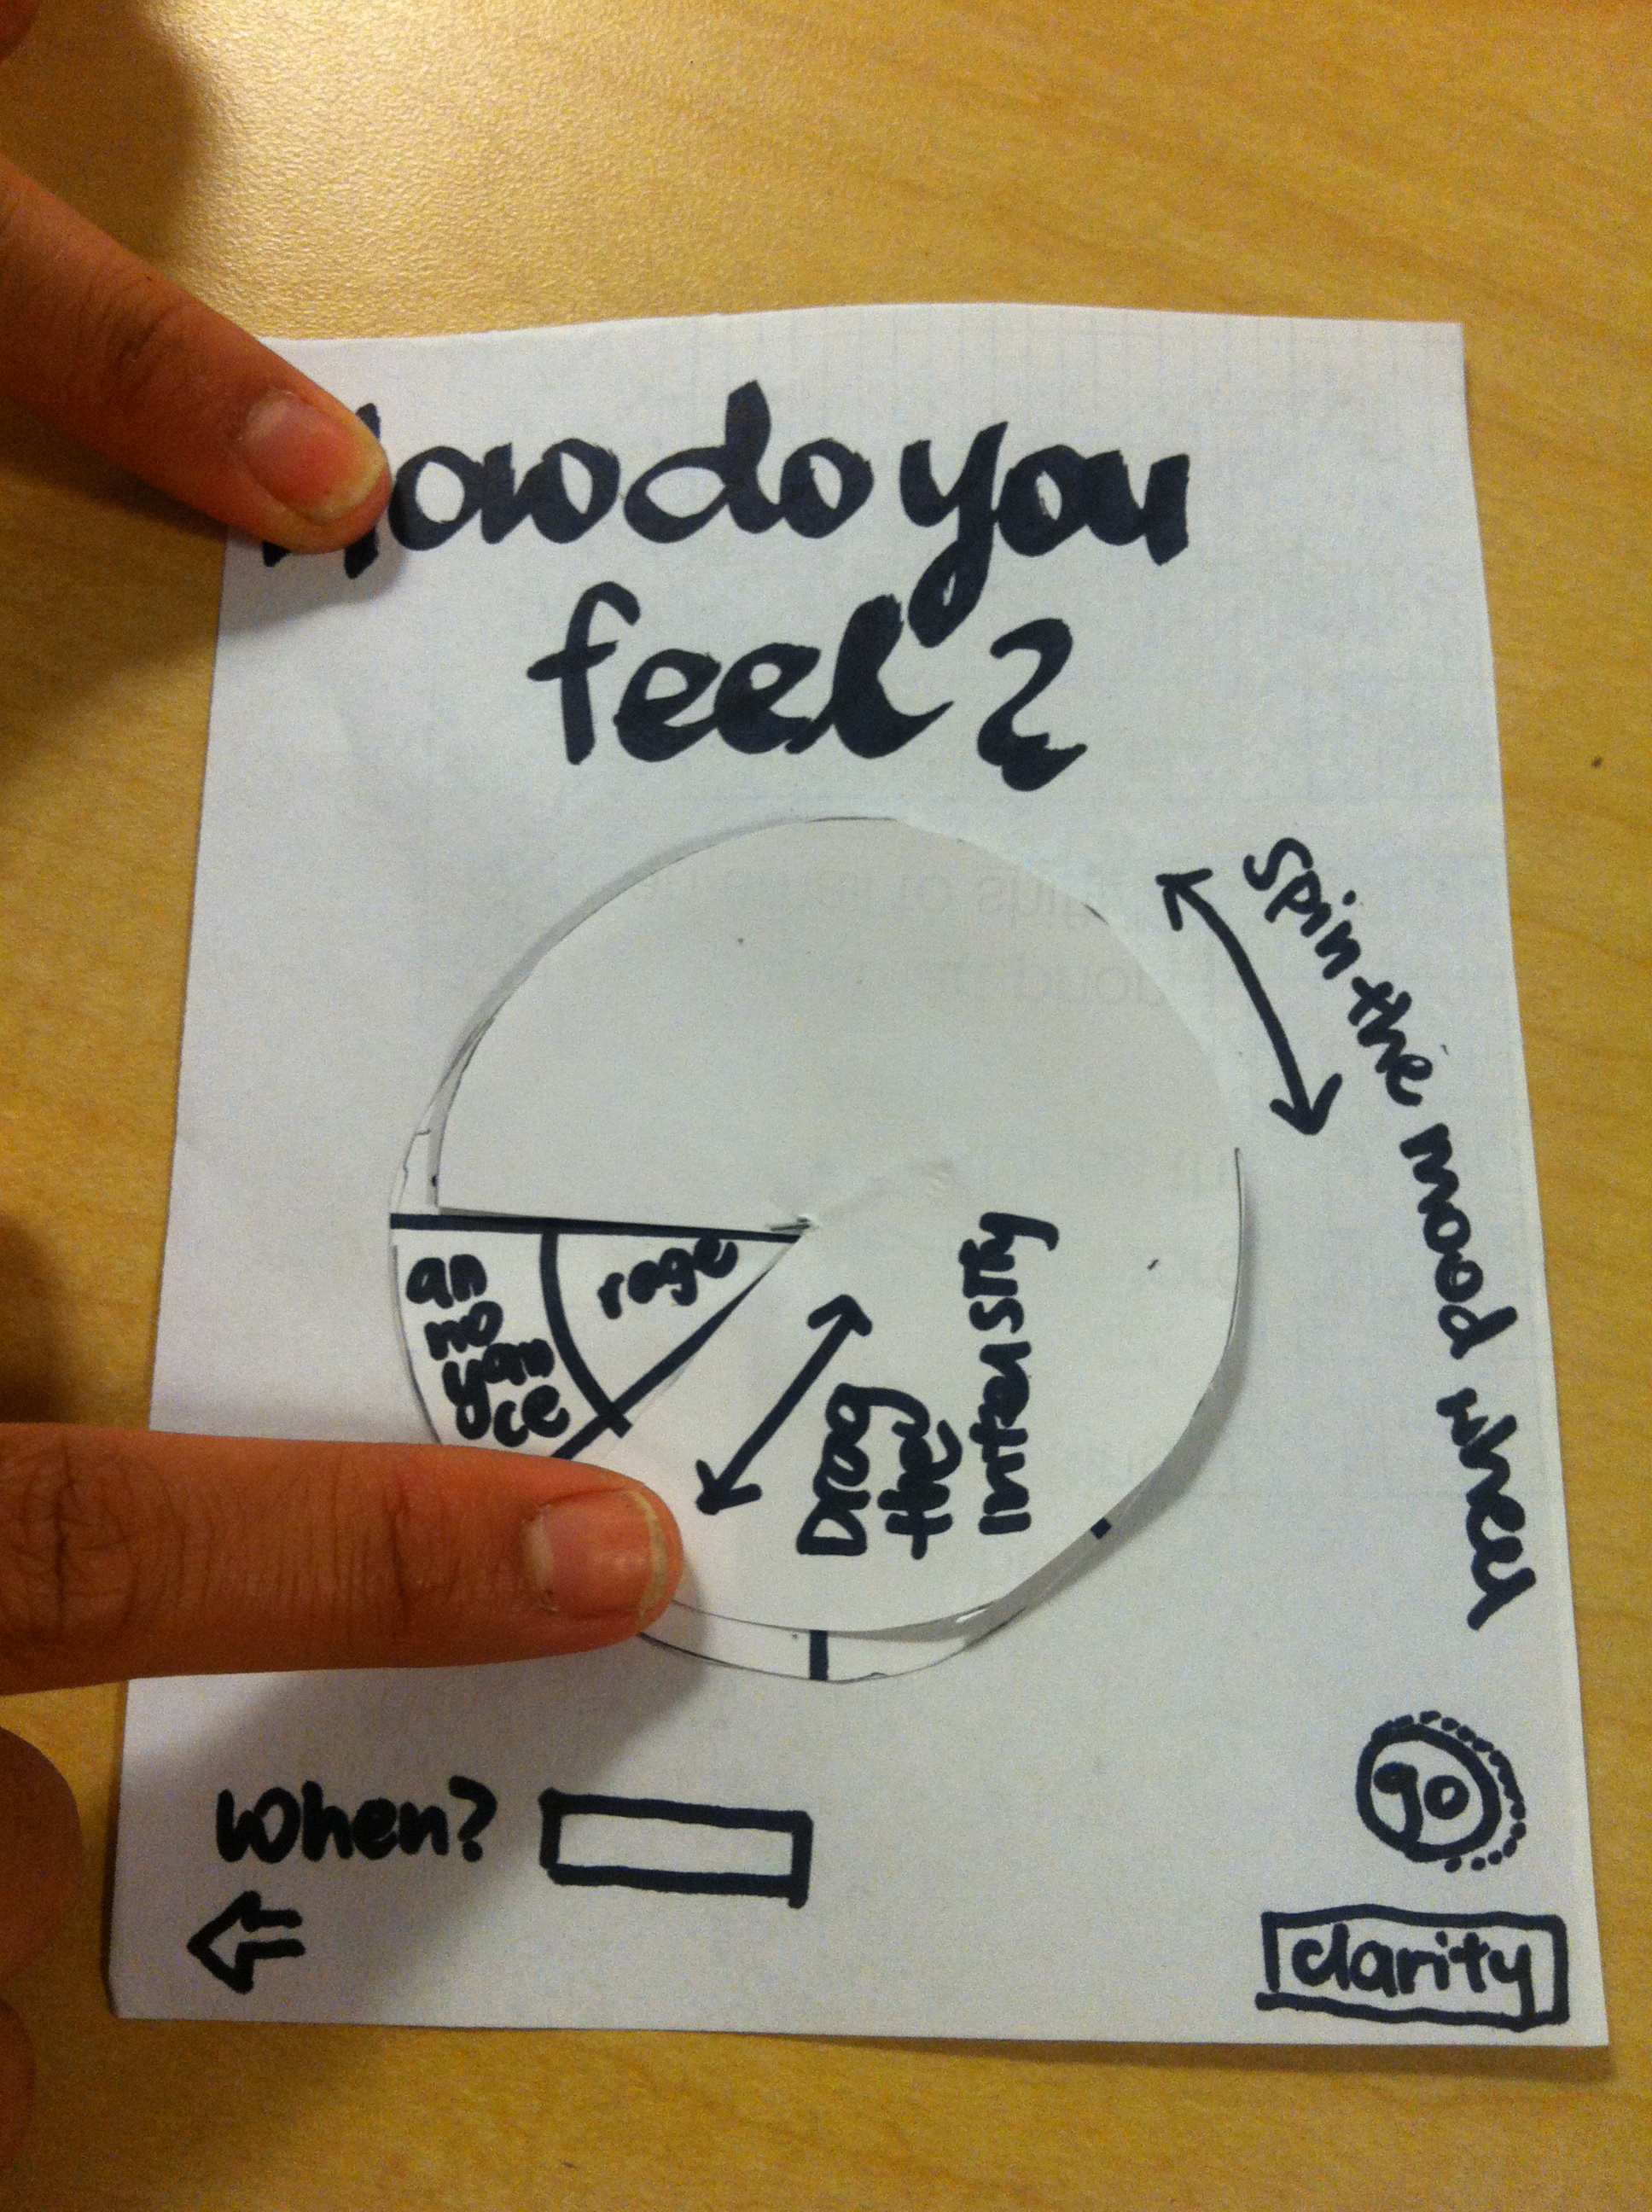 How do you
feel?
spin the mood wheel
rage
an
no
yan
ce
Drag
the
intensity
when?
go
clarity